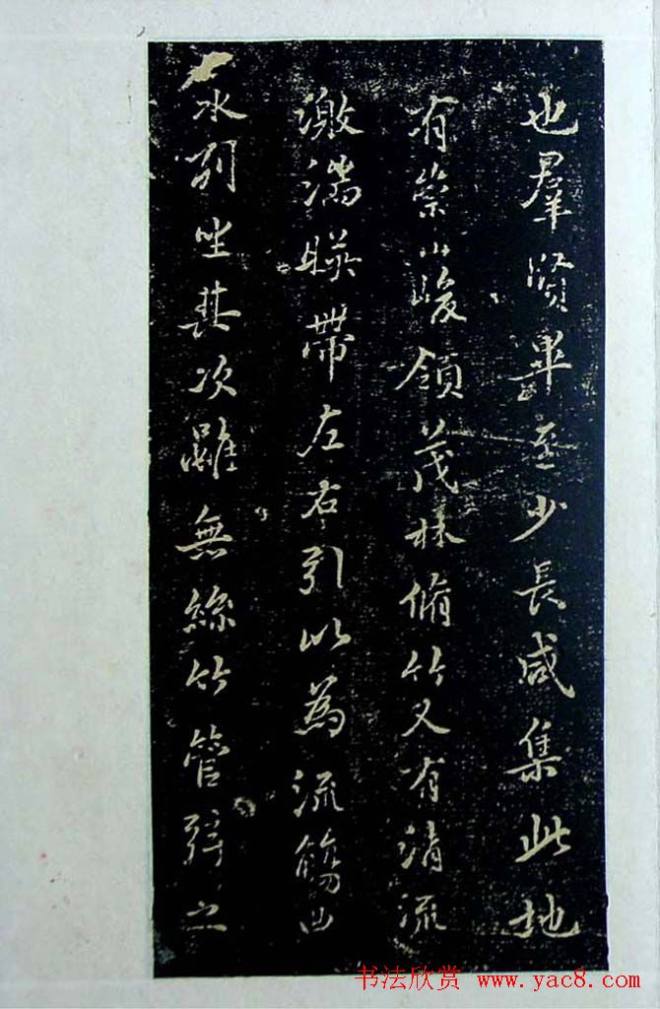 也羣賢畢至少長咸集此地
有崇山峻領茂林脩竹又有清流
激湍暎帶左右引以為流觴曲
水列坐其次雖無絲竹管弦之
书法欣赏 www.yac8.com